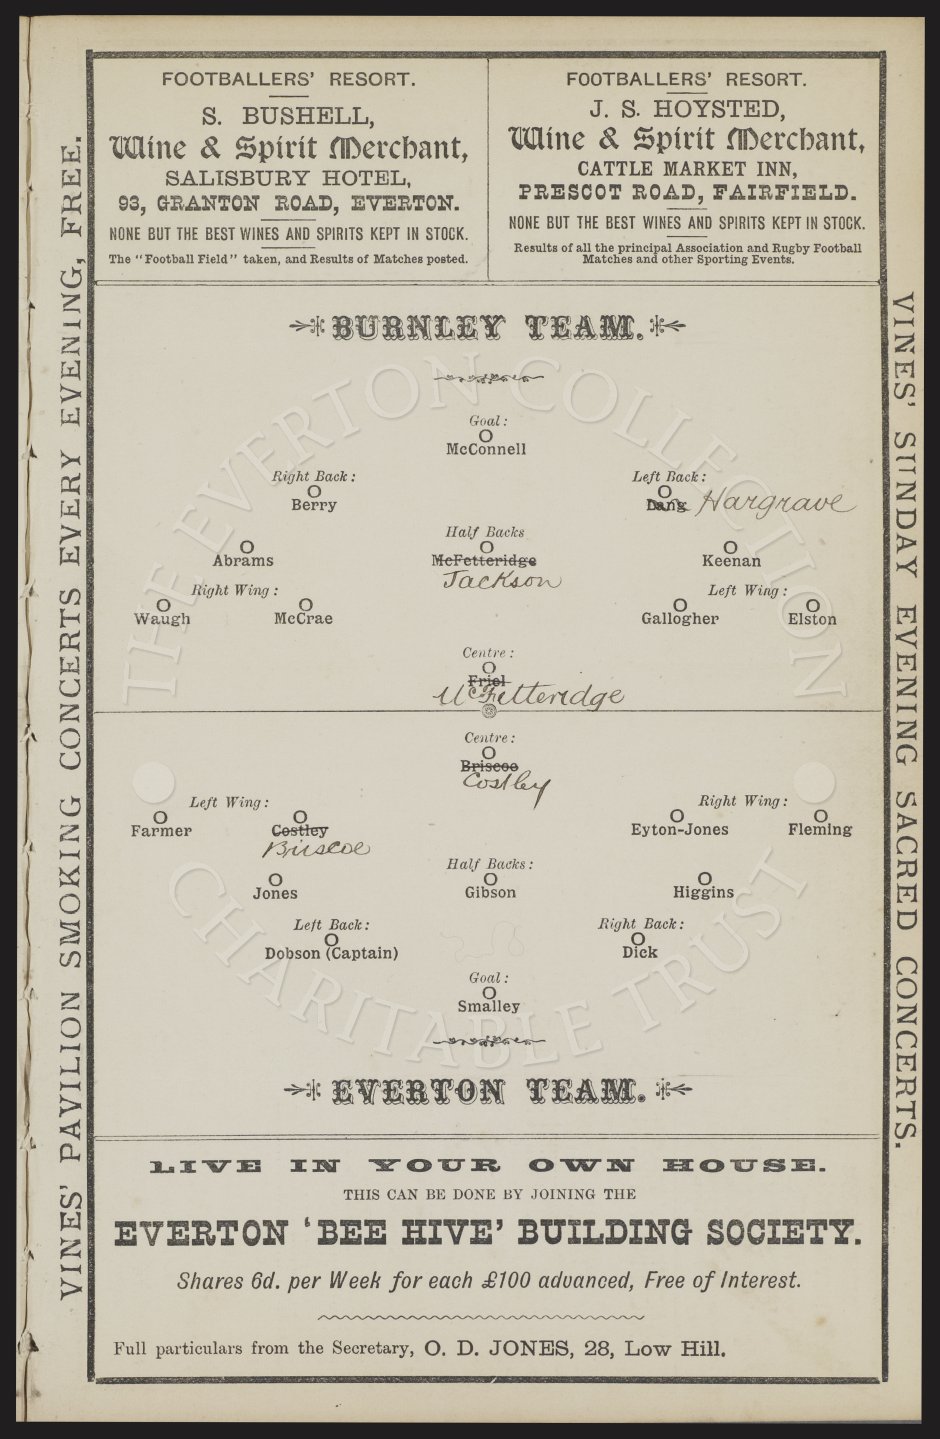 FOOTBALLERS' RESORT.
S. BUSHELL,
Wine & Spirit Merchant,
SALISBURY HOTEL,
93, GRANTON ROAD, EVERTON.
NONE BUT THE BEST WINES AND SPIRITS KEPT IN STOCK.
The "Football Field" taken, and Results of Matches posted.
FOOTBALLERS' RESORT.
J. S. HOYSTED,
Wine & Spirit Merchant,
CATTLE MARKET INN,
PRESCOT ROAD, FAIRFIELD.
NONE BUT THE BEST WINES AND SPIRITS KEPT IN STOCK.
Results of all the principal Association and Rugby Football
Matches and other Sporting Events.
VINES' PAVILION SMOKING CONCERTS EVERY EVENING, FREE.
VINES' SUNDAY EVENING SACRED CONCERTS.
BURNLEY TEAM.
Goal:
McConnell
Right Back: Left Back:
Berry Lang Hargrave
Half Backs
Abrams McFetteridge Keenan
Jackson
Right Wing: Left Wing:
Waugh McCrae Gallogher Elston
Centre:
Friel
McFetteridge
Centre:
Briscoe
Costley
Left Wing: Right Wing:
Farmer Costley Eyton-Jones Fleming
Briscoe
Half Backs:
Jones Gibson Higgins
Left Back: Right Back:
Dobson (Captain) Dick
Goal:
Smalley
EVERTON TEAM.
THE EVERTON COLLECTION
CHARITABLE TRUST
LIVE IN YOUR OWN HOUSE.
THIS CAN BE DONE BY JOINING THE
EVERTON 'BEE HIVE' BUILDING SOCIETY.
Shares 6d. per Week for each £100 advanced, Free of Interest.
Full particulars from the Secretary, O. D. JONES, 28, Low Hill.